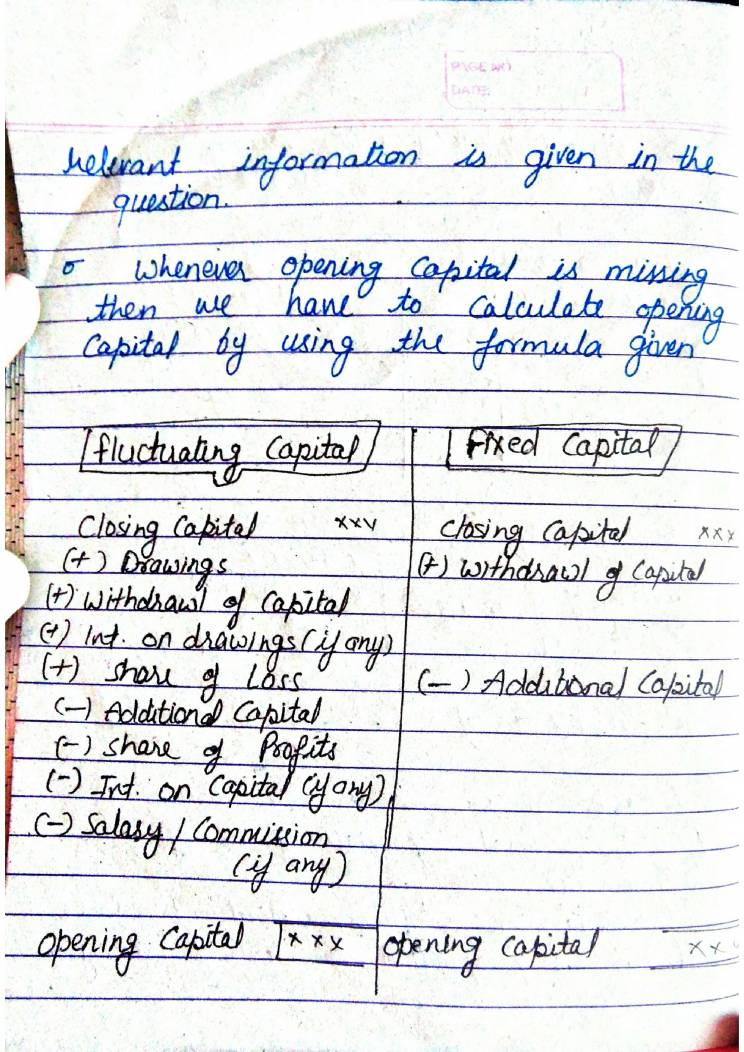 PAGE NO
DATE:
relevant information is given in the
question.
o Whenever opening Capital is missing
then we have to Calculate opening
Capital by using the formula given
fluctuating Capital
Fixed Capital
Closing Capital xxx
(+) Drawings
(+) Withdrawl of Capital
(+) Int. on drawings (if any)
(+) Share of Loss
(-) Additional Capital
(-) Share of Profits
(-) Int. on Capital (if any)
(-) Salary / Commission
(if any)
Opening Capital xxx
Closing Capital xxx
(+) Withdrawl of Capital
(-) Additional Capital
Opening Capital xx